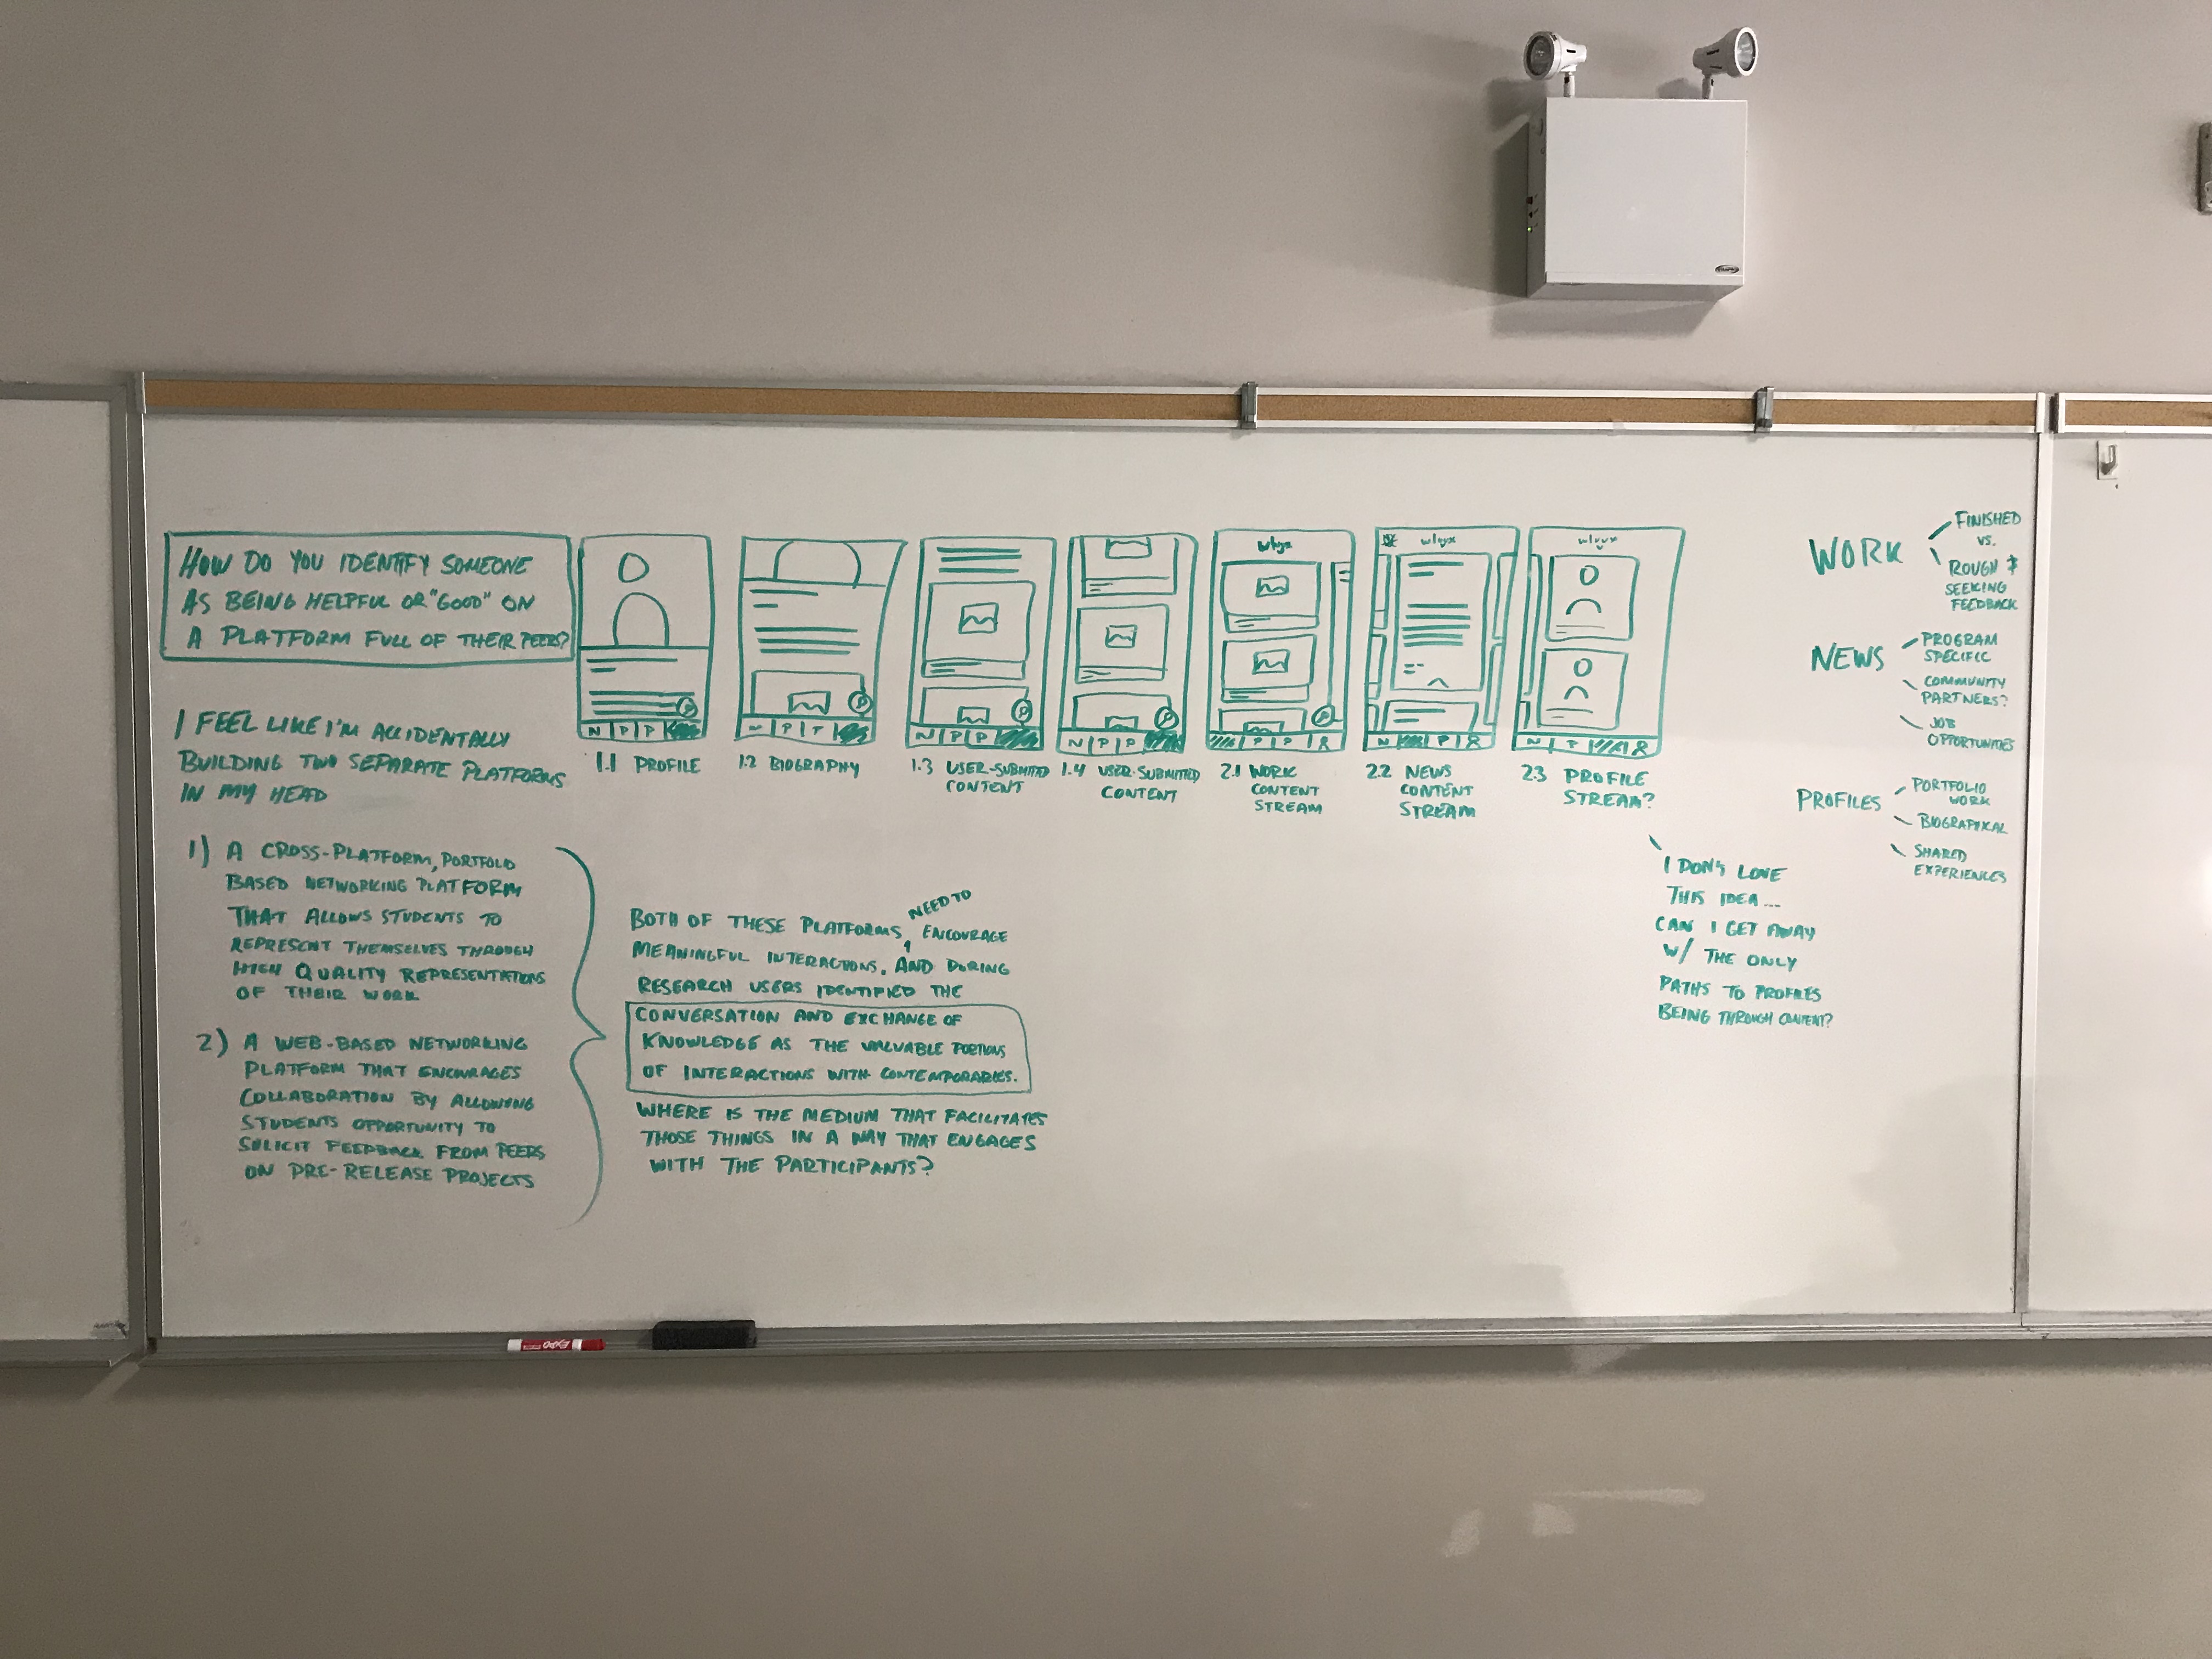 HOW DO YOU IDENTIFY SOMEONE
AS BEING HELPFUL OR "GOOD" ON
A PLATFORM FULL OF THEIR PEERS?
I FEEL LIKE I'M ACCIDENTALLY
BUILDING TWO SEPARATE PLATFORMS
IN MY HEAD
1) A CROSS-PLATFORM, PORTFOLIO
BASED NETWORKING PLATFORM
THAT ALLOWS STUDENTS TO
REPRESENT THEMSELVES THROUGH
HIGH QUALITY REPRESENTATIONS
OF THEIR WORK
2) A WEB-BASED NETWORKING
PLATFORM THAT ENCOURAGES
COLLABORATION BY ALLOWING
STUDENTS OPPORTUNITY TO
SOLICIT FEEDBACK FROM PEERS
ON PRE-RELEASE PROJECTS
NEED TO
BOTH OF THESE PLATFORMS, ENCOURAGE
MEANINGFUL INTERACTIONS. AND DURING
RESEARCH USERS IDENTIFIED THE
CONVERSATION AND EXCHANGE OF
KNOWLEDGE AS THE VALUABLE PORTIONS
OF INTERACTIONS WITH CONTEMPORARIES.
WHERE IS THE MEDIUM THAT FACILITATES
THOSE THINGS IN A WAY THAT ENGAGES
WITH THE PARTICIPANTS?
N P P
1.1 PROFILE
1.2 BIOGRAPHY
N P P
1.3 USER-SUBMITTED
CONTENT
N P P
1.4 USER-SUBMITTED
CONTENT
P P
2.1 WORK
CONTENT
STREAM
N P
2.2 NEWS
CONTENT
STREAM
2.3 PROFILE
STREAM?
I DON'T LOVE
THIS IDEA...
CAN I GET AWAY
W/ THE ONLY
PATHS TO PROFILES
BEING THROUGH CONTENT?
WORK
FINISHED
VS.
ROUGH &
SEEKING
FEEDBACK
NEWS
PROGRAM
SPECIFIC
COMMUNITY
PARTNERS?
JOB
OPPORTUNITIES
PROFILES
PORTFOLIO
WORK
BIOGRAPHICAL
SHARED
EXPERIENCES
EXPO